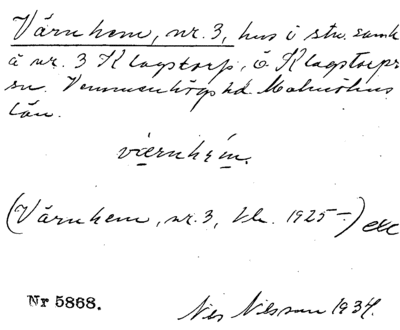 Värnhem, nr. 3, hus i stw. samh.
å nr. 3 Klagstorp, ö Klagstorps
sn. Vemmenhögs hd. Malmöhus
län.
viernhém.
(Värnhem, nr. 3, 1925-)
Nr 5868.
Nils Nilsson 1934.